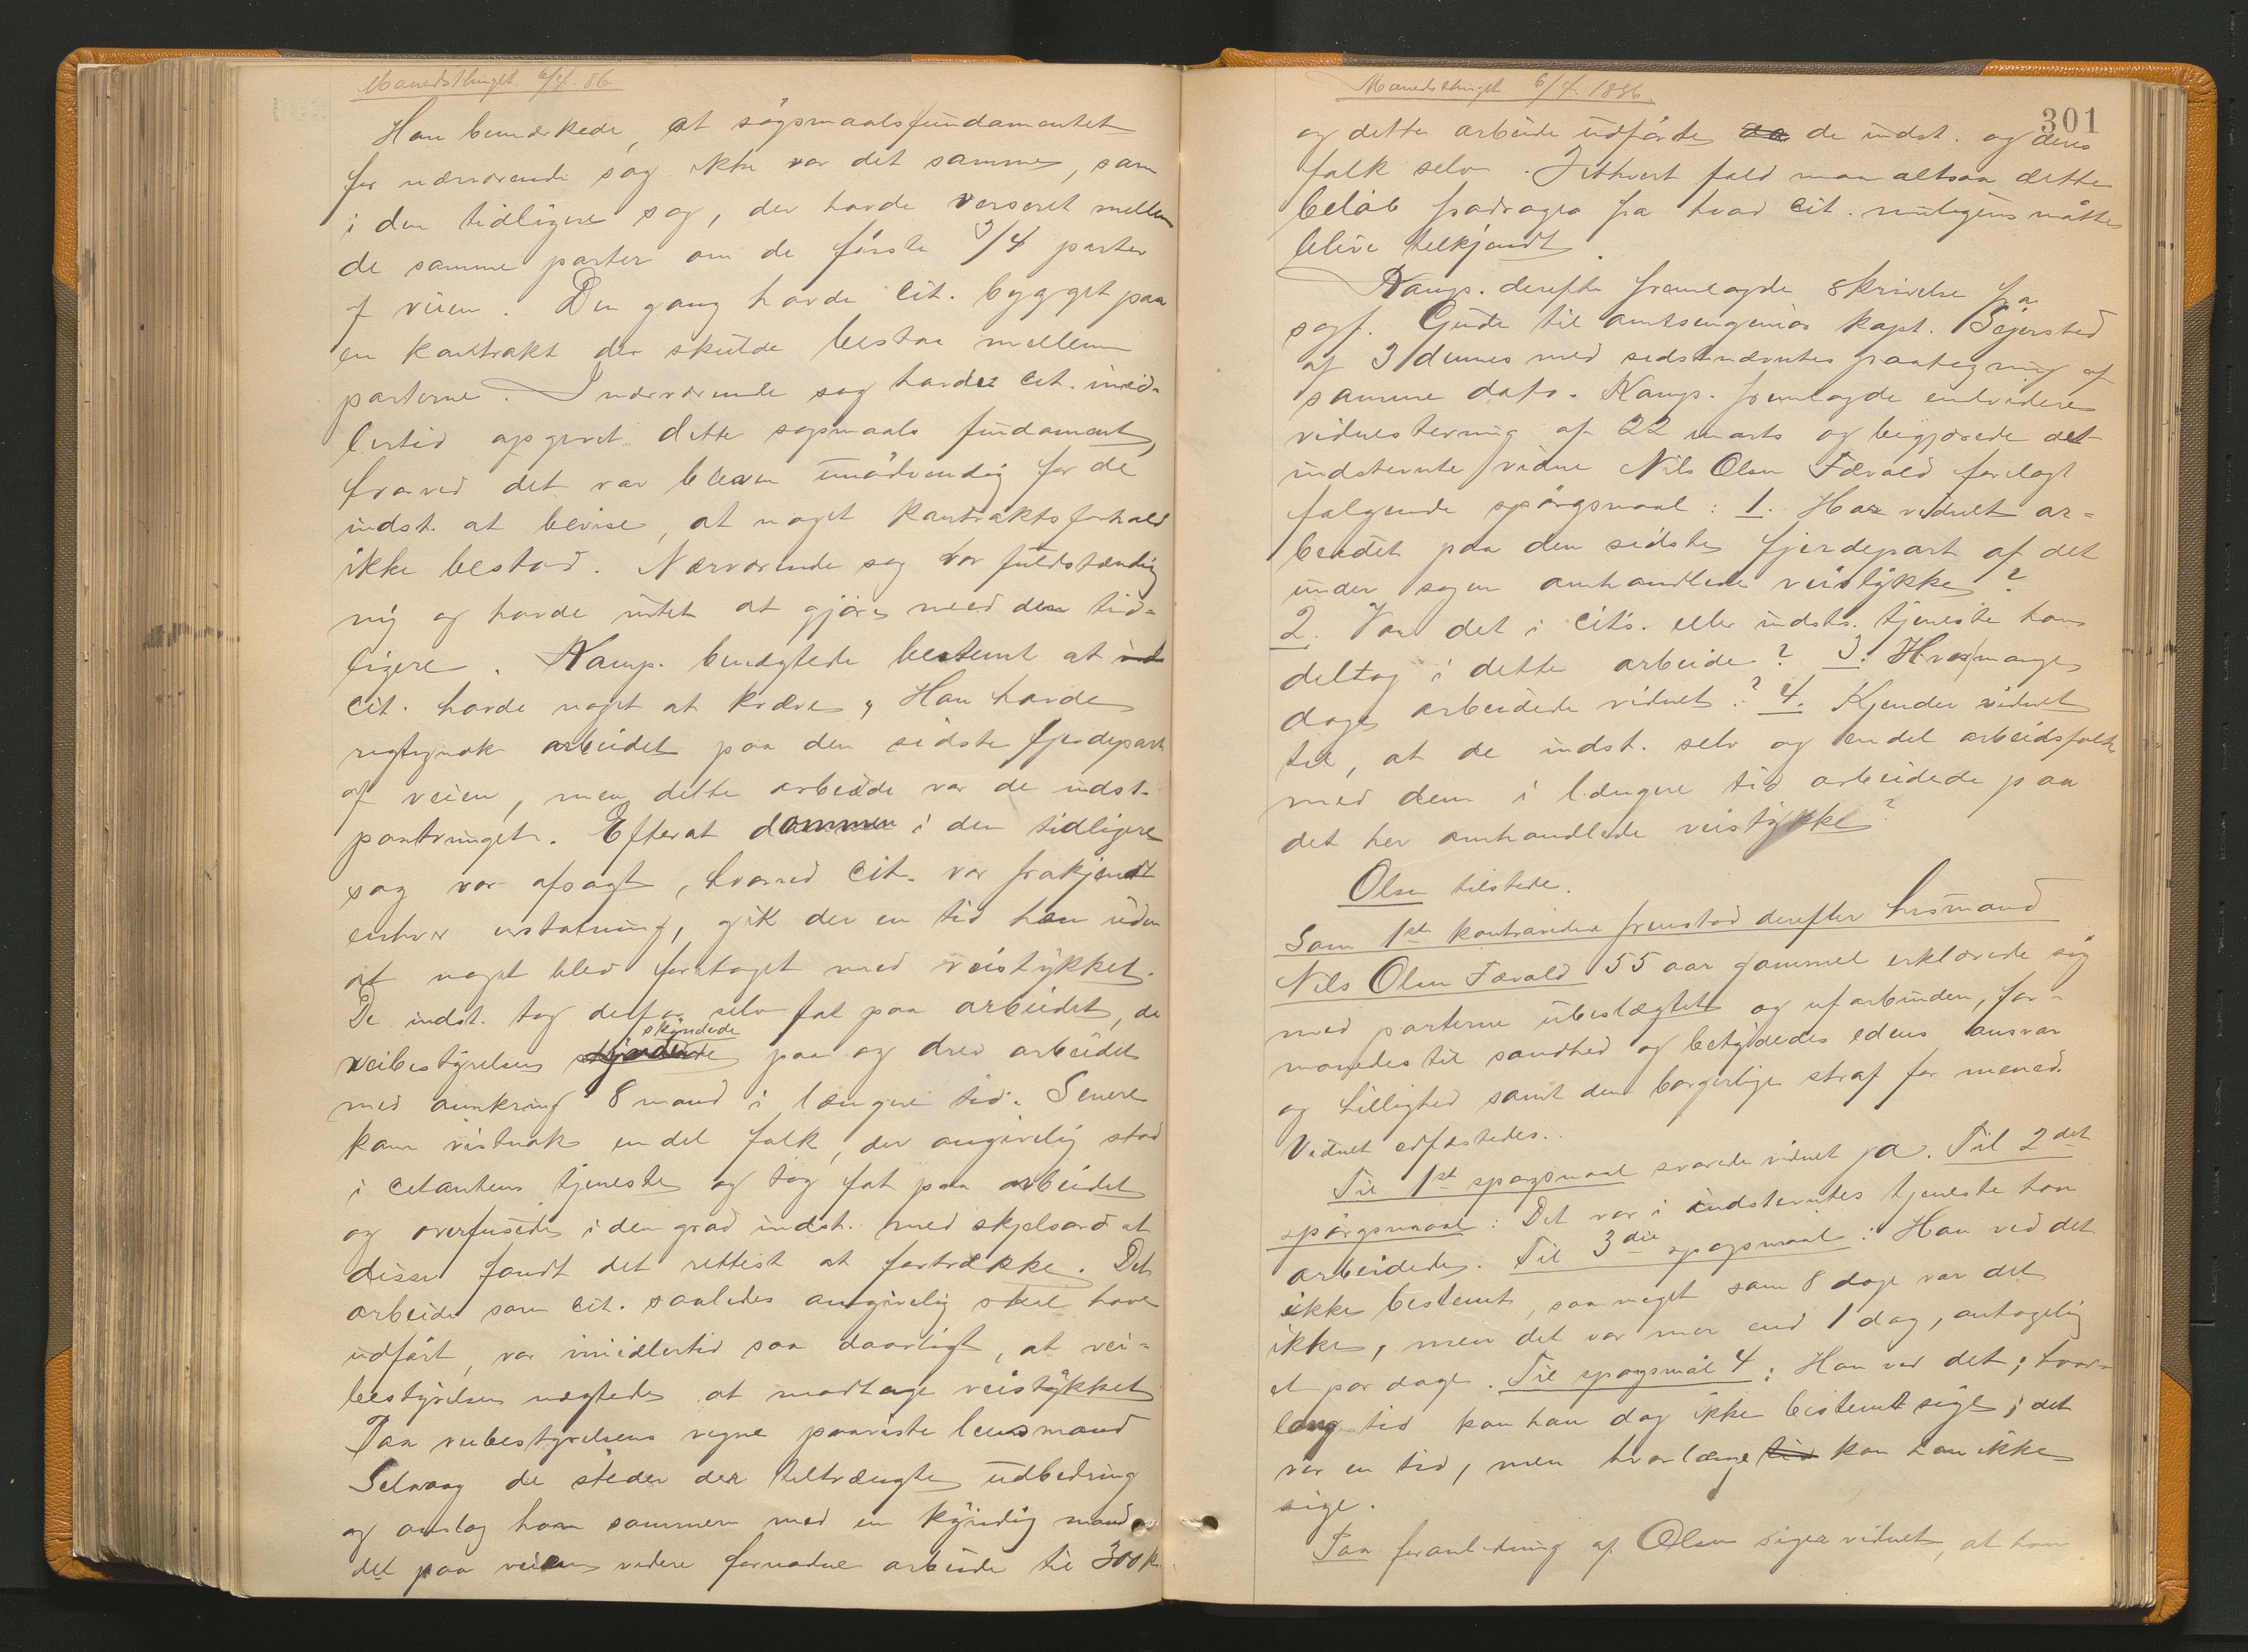 Maanedsthinget 6/4. 86
Han bemærkede, at søgsmaalsfundamentet
for nærværende sag ikke var det samme, som
i den tidligere sag, der havde verseret mellem
de samme parter om de første 3/4 parter
af veien. Den gang havde cit. bygget paa
en kontrakt der skulde bestaa mellem
parterne. I nærværende sag havde cit. imid-
lertid opgivet dette søgsmaals fundament,
hvorved det var bleven unødvendig for de
indst. at bevise, at noget kontraktsforhold
ikke bestod. Nærværende sag var fuldstændig
ny og havde intet at gjøre med den tid-
ligere. Kamp. benægtede bestemt at
cit. havde noget at kræve, Han havde
rigtignok arbeidet paa den sidste fjerdepart
af veien, men dette arbeide var de indst.
paatvunget. Efterat dommen i den tidligere
sag var afsagt, hvorved cit. var frakjendt
enhver erstatning, gik der en tid hen uden
at noget blev foretaget med veistykket.
De indst. tog derfor selv fat paa arbeidet, da
veibestyrelsen skyndede paa og drev arbeidet
med omkring 8 mand i længere tid. Senere
kom vistnok endel folk, der angivelig stod
i citantens tjeneste og tog fat paa arbeidet
og overfusede i den grad indst. med skjelsord at
disse fandt det rettest at fortrække. Det
arbeide som cit. saaledes angivelig skal have
udført, var imidlertid saa daarligt, at vei-
bestyrelsen nægtede at modtage veistykket
Paa veibestyrelsens vegne paaviste lensmand
Selvaag de steder der tiltrængte udbedring
og anslog han sammen med en kyndig mand
det paa veien videre fornødne arbeide til 300 kr.
Maanedsthinget 6/4. 1886.
301
og dette arbeide udførte de indst. og deres
folk selv. I ethvert fald maa altsaa dette
beløb fradrages fra hvad cit. muligens måtte
blive tilkjendt.
Kamp. derefter fremlagde skrivelse fra
sagf. Gude til amtsingeniør kapt. Sejersted
af 3 dennes med sidstnævntes paategning af
samme dato. Kamp. fremlagde endvidere
vidnestevning af 22 marts og begjærede det
indstevnte vidne Nils Olsen Tævold forelagt
følgende spørgsmaal: 1. Har vidnet ar-
beidet paa den sidste fjerdepart af det
under sagen omhandlede veistykke?
2. Var det i cits. eller indsts. tjeneste han
deltog i dette arbeide? 3. Hvormange
dage arbeidede vidnet? 4. Kjender vidnet
til, at de indst. selv og endel arbeidsfolk
med dem i længere tid arbeidede paa
det her omhandlede veistykke?
Olsen tilstede.
Som 1ste kontravidne fremstod derefter husmand
Nils Olsen Tævold 55 aar gammel erklærede sig
med parterne ubeslægtet og uforbunden, for-
manedes til sandhed og betydedes edens ansvar
og hellighed samt den borgerlige straf for mened.
Vidnet edfæstedes.
Til 1st spøgsmaal svarede vidnet ja. Til 2det
spørgsmaal: Det var i indstevntes tjeneste han
arbeidede. Til 3die spøgsmaal: Han ved det
ikke bestemt, saa meget som 8 dage var det
ikke, men det var mer end 1 dag, antagelig
et par dage. Til spøgsmål 4: Han ved det; hvor-
lang tid kan han dog ikke bestemt sige; det
var en tid, men hvorlænge tid kan han ikke
sige.
Paa foranledning af Olsen siger vidnet, at han